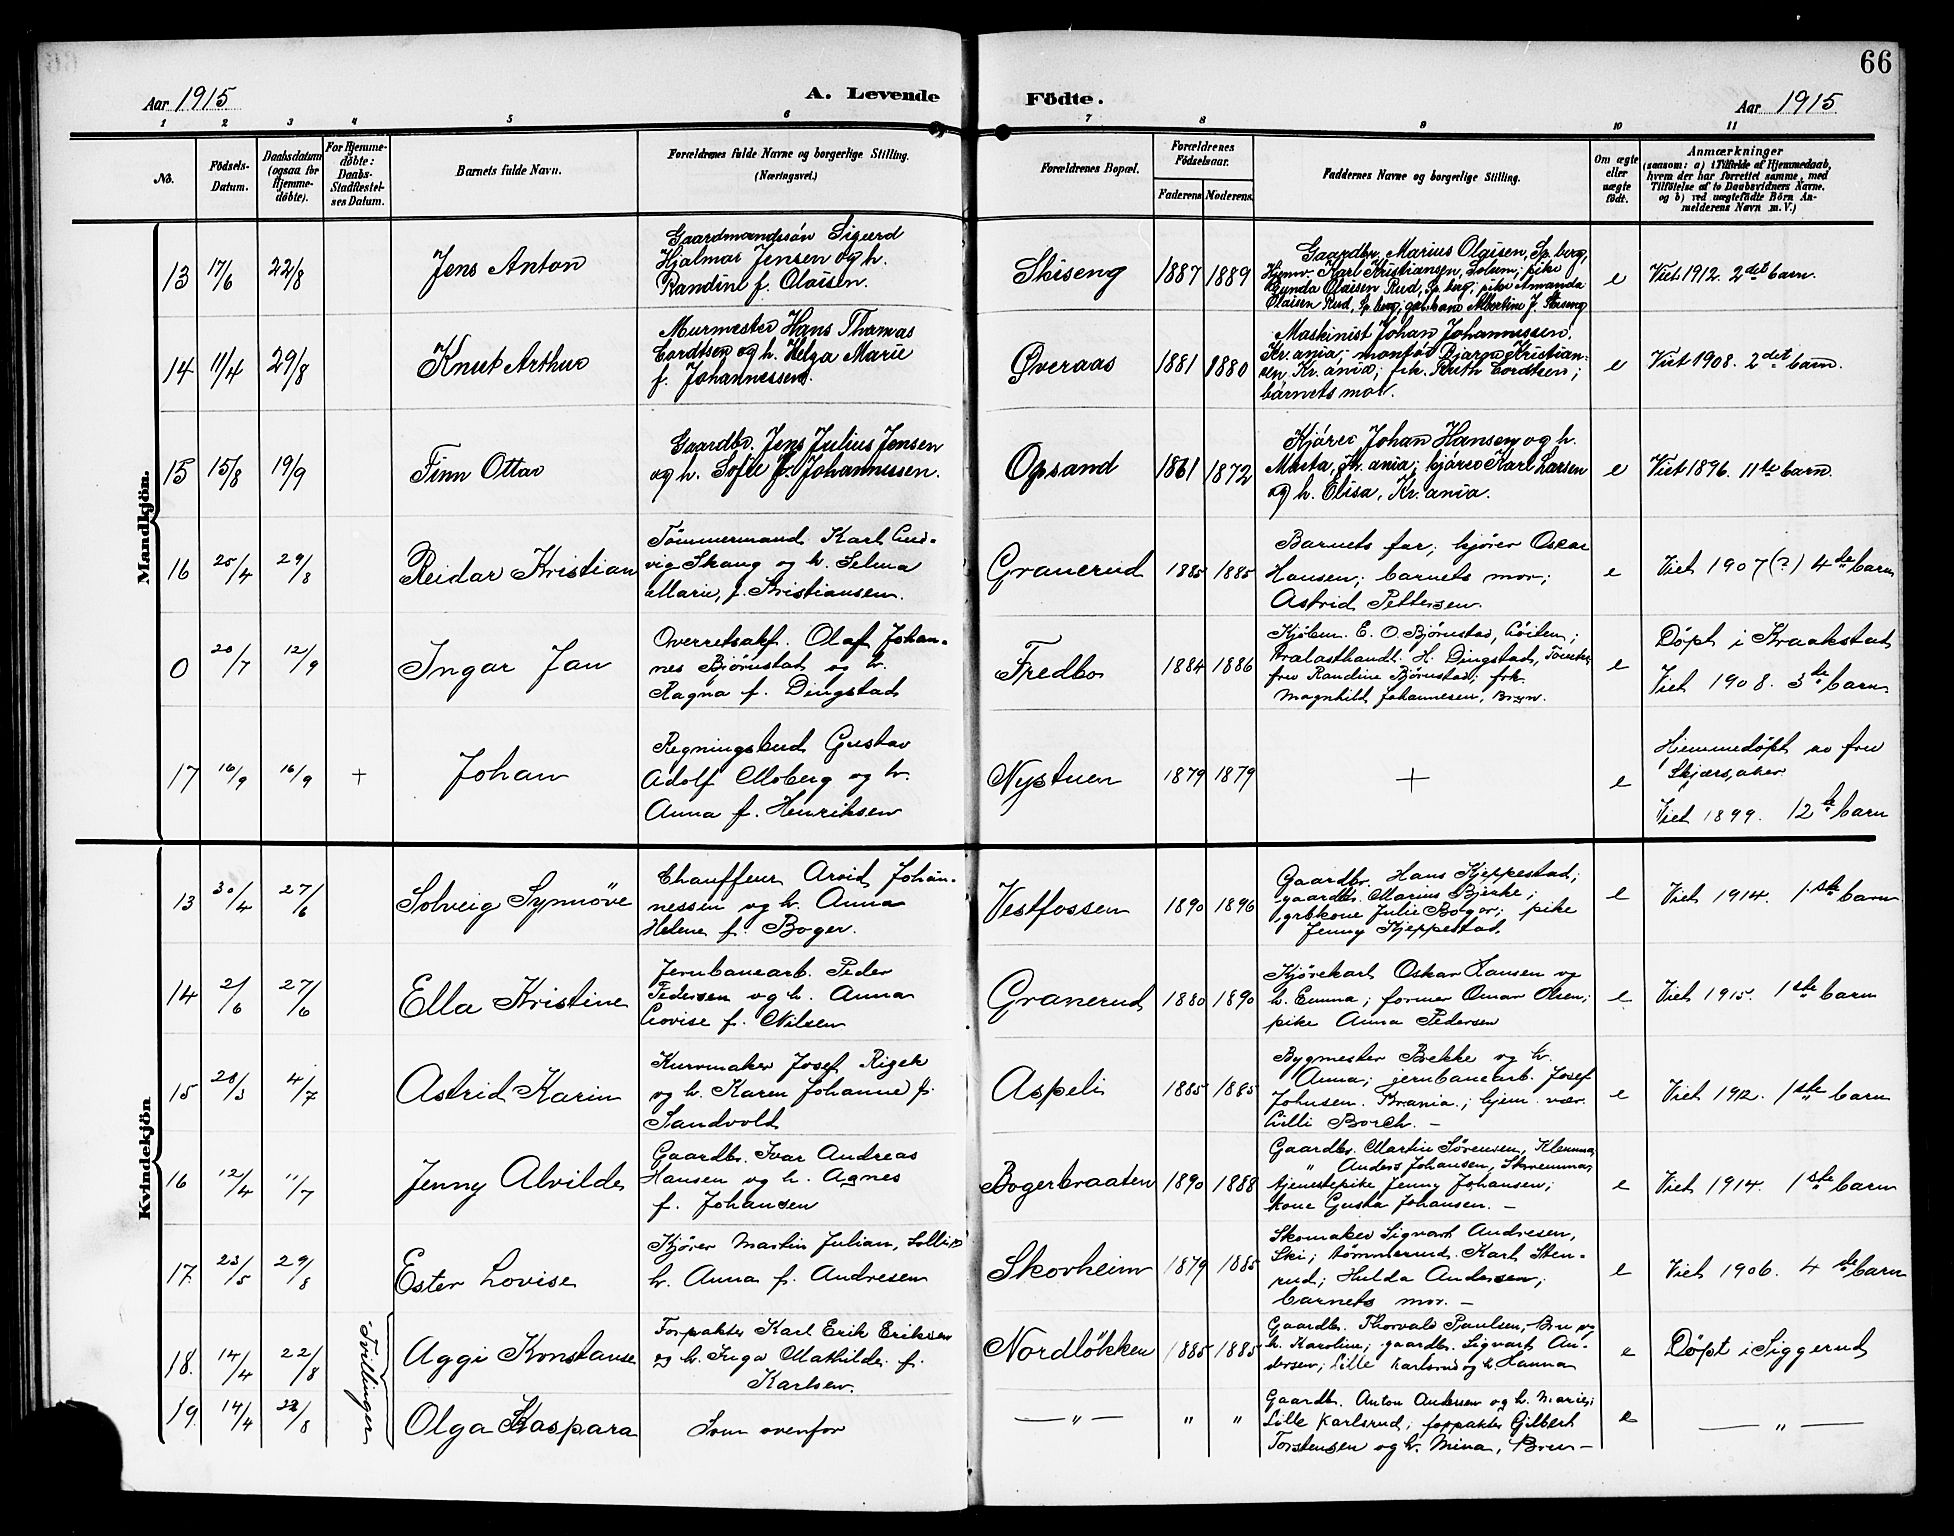 66
Aar 1915
A. Levende
Födte.
Aar 1915
1 2 3 4 5 6 7 8 9 10 11
No.
Födsels-
Datum.
Daabsdatum
(ogsaa for
Hjemme-
døbte).
For Hjemme-
døbte:
Daabs-
Stadfæstel-
ses Datum.
Barnets fulde Navn.
Forældrenes fulde Navne og borgerlige Stilling.
(Næringsvei.)
Forældrenes Bopæl.
Forældrenes
Födselsaar.
Faderens
Moderens
Faddernes Navne og borgerlige Stilling.
Om ægte
eller
uægte
født.
Anmærkninger
(saasom: a) i Tilfælde af Hjemmedaab,
hvem der har forrettet samme, med
Tilføielse af to Daabsvidners Navne,
og b) ved uægtefødte Börn An-
melderens Navn m. V.)
Mandkjön.
13 17/6 22/8
Jens Anton
Gaardmandssøn Sigurd
Hjalmar Jensen og h.
Randine f. Olaisen.
Skiseng 1887 1889
Gaardbr. Marius Olaisen, Sp.berg,
Hjemv. Karl Kristiansen, Solum; pike
Gunda Olaisen Rud, Sp.berg; pike Amanda
Olaisen Rud, Sp.berg; Albertine J. Skiseng
e Viet 1912. 2det barn.
14 11/4 29/8
Knut Arthur
Murmester Hans Thomas
Cordtsen og h. Helga Marie
f. Johannessen.
Øveraas 1881 1880
Maskinist Johan Johannessen,
Kr.ania; montör Bjarne Kristian-
sen Kr.ania; frk. Ruth Cordtsen;
barnets mor.
e Viet 1908. 2det barn.
15 15/8 19/9
Finn Ottar
Gaardbr. Jens Julius Jensen
og h. Sofie f. Johannessen.
Opsand 1861 1872
Kjörer Johan Hansen og h.
Marta, Kr.ania; kjörer Karl Larsen
og h. Elisa, Kr.ania.
e Viet 1896. 11te barn.
16 25/4 29/8
Reidar Kristian
Tömmermand Karl Lud-
vig Skaug og h. Selma
Marie, f. Kristiansen.
Granerud 1885 1885
Barnets far; kjører Oscar
Hansen; barnets mor;
Astrid Pettersen.
e Viet 1907(?) 4de barn
0 20/7 12/9
Ingar Jan
Overretsakf. Olaf Johan-
nes Bjørnstad og h.
Ragna f. Dingstad
Fredbo 1884 1886
Kjöbm. E. O. Bjørnstad, Löiten;
trælasthandl. H. Dingstad,
fru Randine Bjørnstad; frk.
Magnhild Johannesen, Bryn.
e Döpt i Kraakstad
Viet 1908. 3de barn.
17 16/9 16/9 +
Johan
Regningsbud Gustav
Adolf Moberg og h.
Anna f. Henriksen
Nystuen 1879 1879
+
e
Hjemmedöpt av fru
Skjærsaker.
Viet 1899. 12te barn
Kvindekjön
13 30/4 27/6
Solveig Synnöve
Chauffeur Arvid Johan-
nessen og h. Anna
Helene f. Boger.
Vestfossen 1890 1896
Gaardbr. Hans Kjeppestad;
gaardbr. Marius Bjerke;
grbkone Julie Boger; pike
Jenny Kjeppestad.
e Viet 1914. 1ste barn
14 2/6 27/6
Ella Kristine
Jernbanearb. Peder
Pedersen og h. Anna
Lovise f. Nilsen
Granerud 1880 1890
Kjörekarl Oskar Hansen og
h. Emma; former Omar Olsen;
pike Anna Pedersen
e Viet 1915. 1ste barn
15 28/3 4/7
Astrid Karin
Kurvmaker Josef Rigek
og h. Karen Johanne f.
Sandvold
Aspeli 1885 1885
Bygmester Bekke og h.
Anna; jernbanearb. Josef
Johnsen. Krania.; hjem. vær.
Lilli Borch. —
e Viet 1912. 1ste barn
16 12/4 11/7
Jenny Alvilde
Gaardbr. Ivar Andreas
Hansen og h. Agnes
f. Johansen
Bogerbraaten 1890 1888
Gaardbr. Martin Sörensen, Klemma,
" Anders Johansen, Skremma,
tjenestepike Jenny Johansen;
kone Gusta Johansen. —
e Viet 1914. 1ste barn
17. 23/5 29/8
Ester Lovise
Kjörer Martin Julian,
h. Anna f. Andresen
Skovheim 1879 1885
Skomaker Sigvart Andresen,
Ski; tömmermd. Karl Sten-
rud; Hulda Andersen;
barnets mor. —
e Viet 1906. 4de barn
Tvillinger
18. 14/4 22/8
Aggi Konstanse
Forpakter Karl Erik Eriksen
og h. Inga Mathilde f.
Karlsen.
Nordlökken 1885 1885
Gaardbr. Thorvald Paulsen, Bru og
h. Karoline; gaardbr. Sigvart An-
dersen; Lille Karlsrud og h. Hanna
e Döpt i Siggerud
19. 14/4 22/8
Olga Kaspara
Som ovenfor
— " — " "
Gaardbr. Anton Andersen og h. Marie;
Lille Karlsrud; forpakter Gilbert
Torstensen og h. Mina, Bru —
e — " —